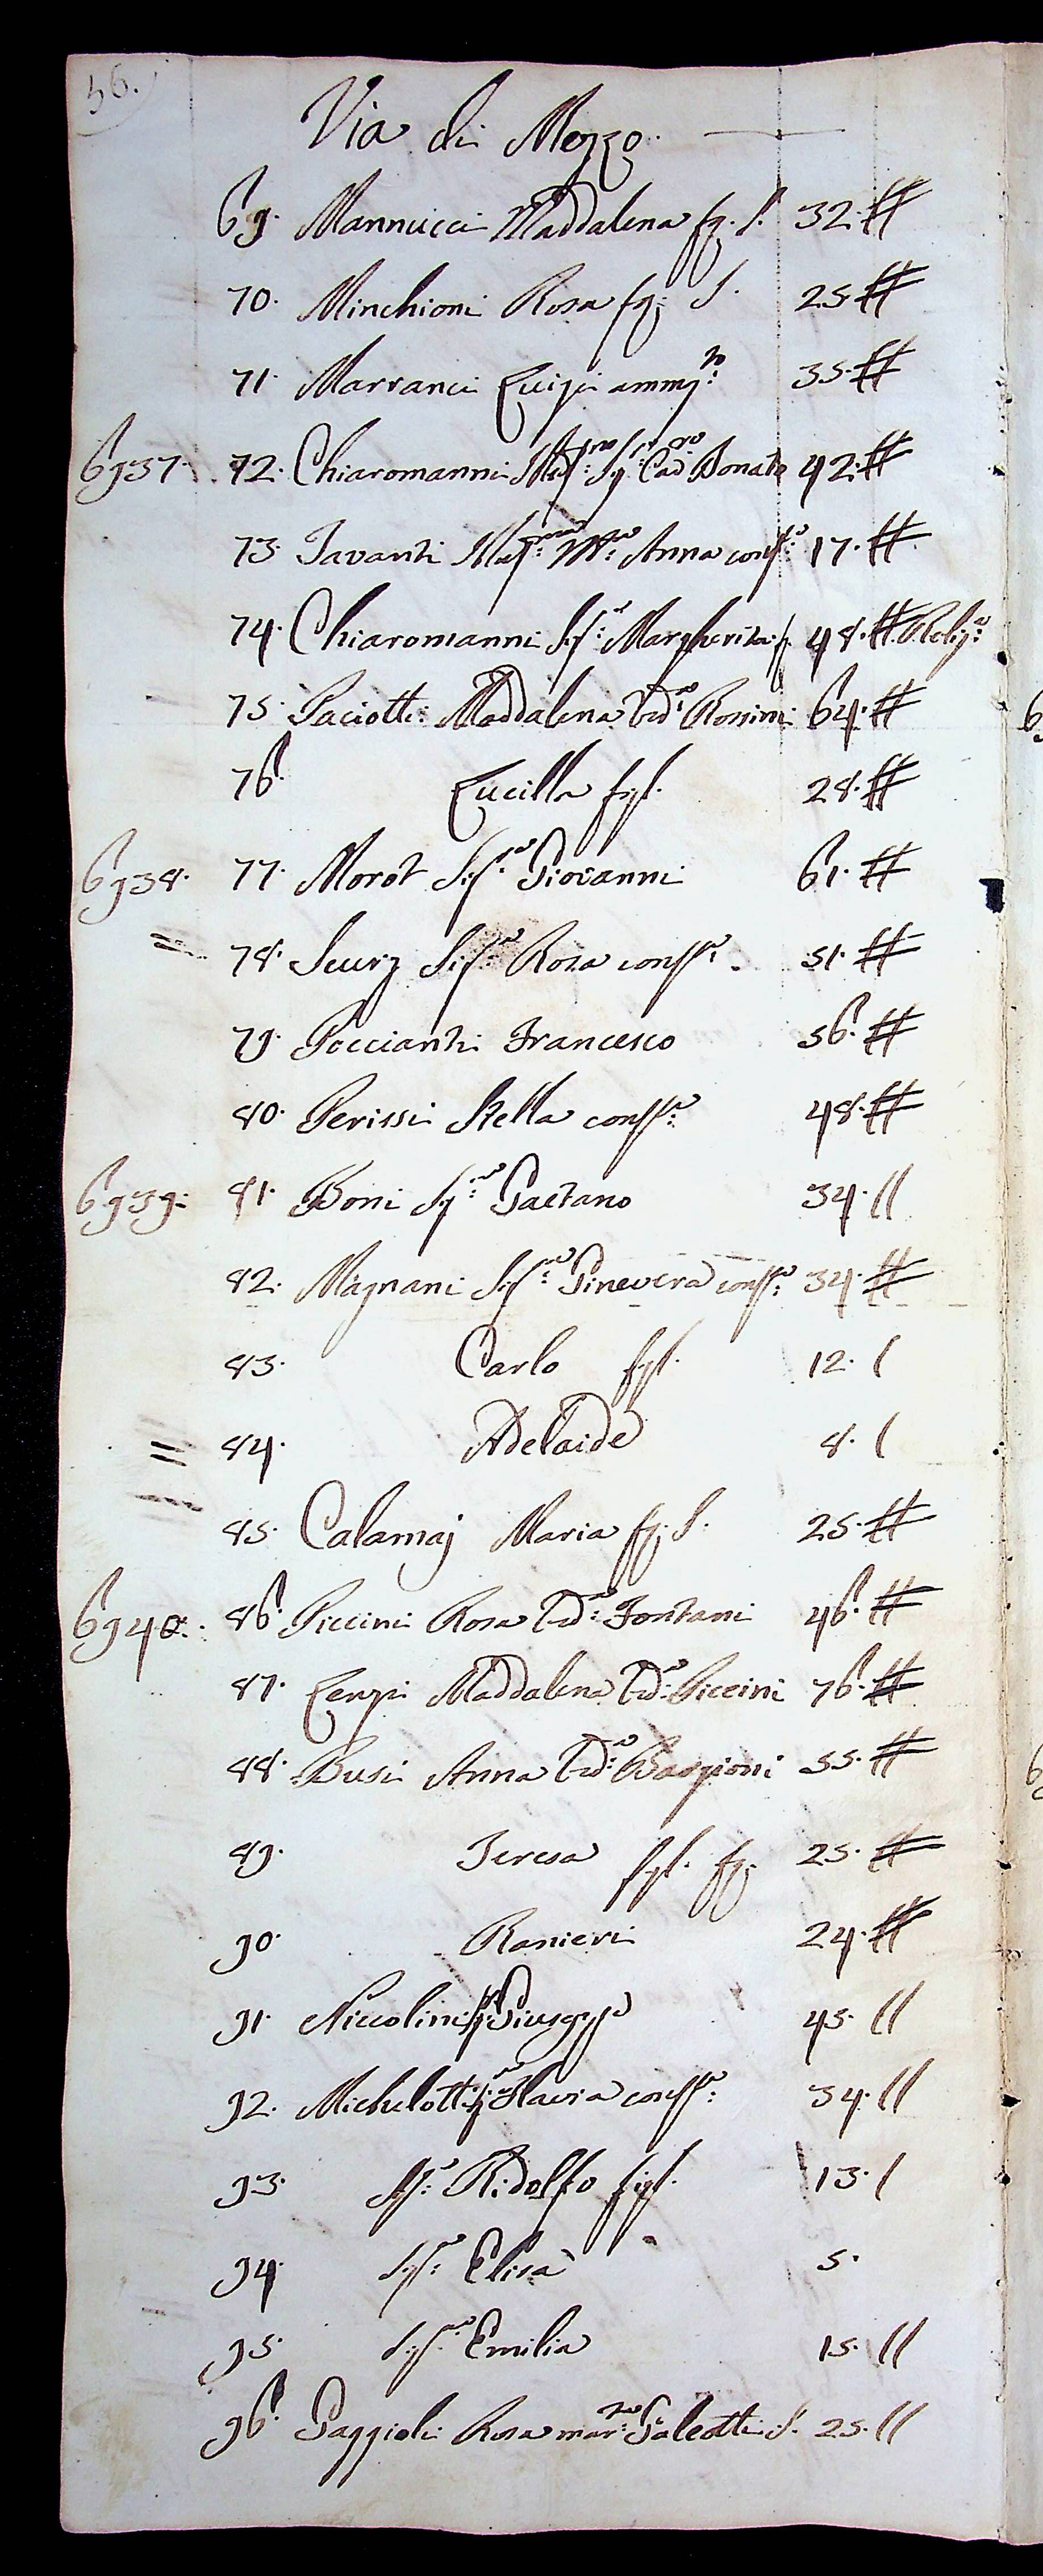 56.
Via di Mezzo.
69. Mannucci Maddalena fz. S. 32. #
70. Minchioni Rosa fz: S. 25 #
71. Marranci Luigi ammg:to 35 #
6937. 72. Chiaromanni Ill: Sig: Cad Donato 42. #
73. Javanti Ill: Ma: Anna conste: 17. #
74. Chiaromanni Sig:a Margherita fz. 48. # Relig:a
75. Paciotti Maddalena Ved:a Rossini 64. #
76. Lucilla figl. 28. #
6938. 77. Morot Sig:re Giovanni 61. #
78. Scurz Sig:a Rosa conste: 51. #
79. Poccianti Francesco 56. #
80. Perissi Stella consте: 48. #
6939. 81. Boni Sig:re Gaetano 34. //
82. Magnani Sig:ra Ginevera conste: 34. #
83. Carlo figl. 12. /
84. Adelaide 8. /
85. Calamaj Maria fz. S. 25. #
6940. 86. Piccini Rosa Ved:a Fontani 46. #
87. Lenzi Maddalena Ved:a Piccini 76. #
88. Busi Anna Ved:a Baggioni 55. #
89. Teresa figl. fz. 25. #
90. Ranieri 24. #
91. Niccolini Sig: Giusepe 45. //
92. Michelotti Sig:a Flavia conste: 34. //
93. Sig:e Ridolfo figl. 13. /
94. Sig:a Elisa 5.
95. Sig:ra Emilia 15. //
96. Gaggioli Rosa mar:ta Galeotti S. 25. //